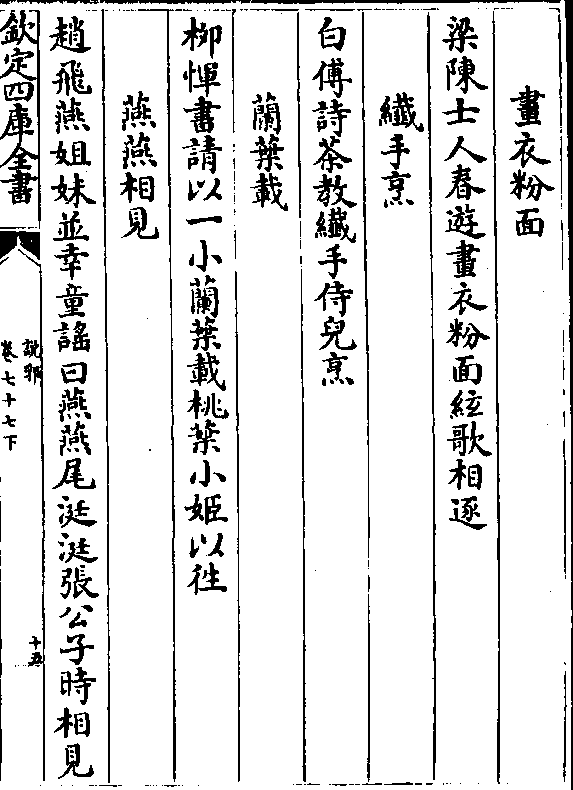 畫衣粉面
梁陳士人春遊畫衣粉面絃歌相逐
纖手烹
白傅詩茶教纖手侍兒烹
蘭葉載
柳惲書請以一小蘭葉載桃葉小姬以往
燕燕相見
趙飛燕姐妹並幸童謠曰燕燕尾涎涎張公子時相見
欽定四庫全書
説郛
卷七十七下
十五